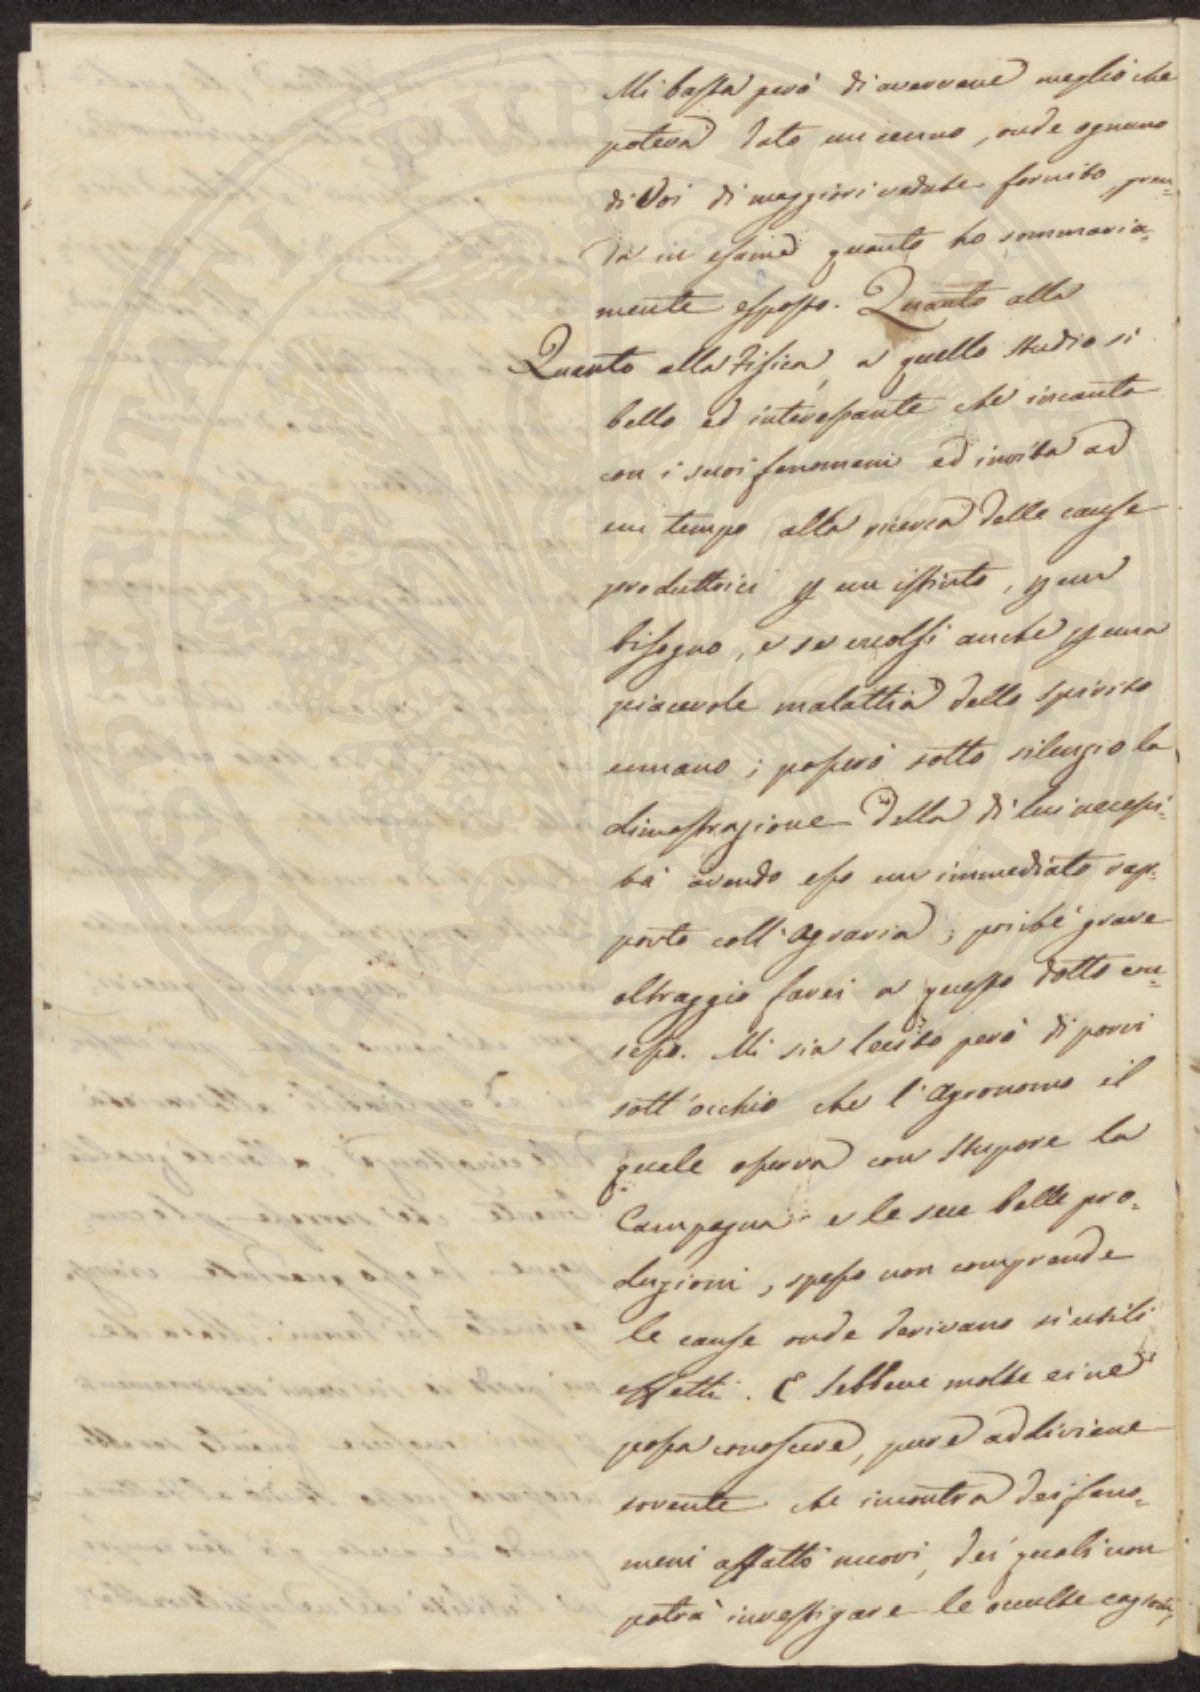 Mi basta però di avervene meglio che
poteva dato un cenno, onde ognuno
di Voi di maggiori vedute fornito pren=
da in esame quanto ho sommaria=
mente esposto. Quanto alla
Quanto alla Fisica, a quello studio sì
bello ed interessante che incanta
con i suoi fenomeni ed invita ad
un tempo alla ricerca delle cause
produttrici p un istinto, p un
bisogno, e se vuolsi anche p una
piacevole malattia dello spirito
umano; passerò sotto silenzio la
dimostrazione della di lui necessi=
tà avendo esso un immediato rap=
porto coll'Agraria, poiché grave
oltraggio farei a questo dotto con=
sesso. Mi sia lecito però di porvi
sott'occhio che l'Agronomo il
quale osserva con stupore la
Campagna e le sue belle pro=
duzioni, spesso non comprende
le cause onde derivano sì utili
effetti. E sebbene molte ei ne
possa conoscere, pure addiviene
sovente che incontra dei feno=
meni affatto nuovi, dei quali non
potrà investigare le occulte cagioni,
POSPERITATI PUBLICAE